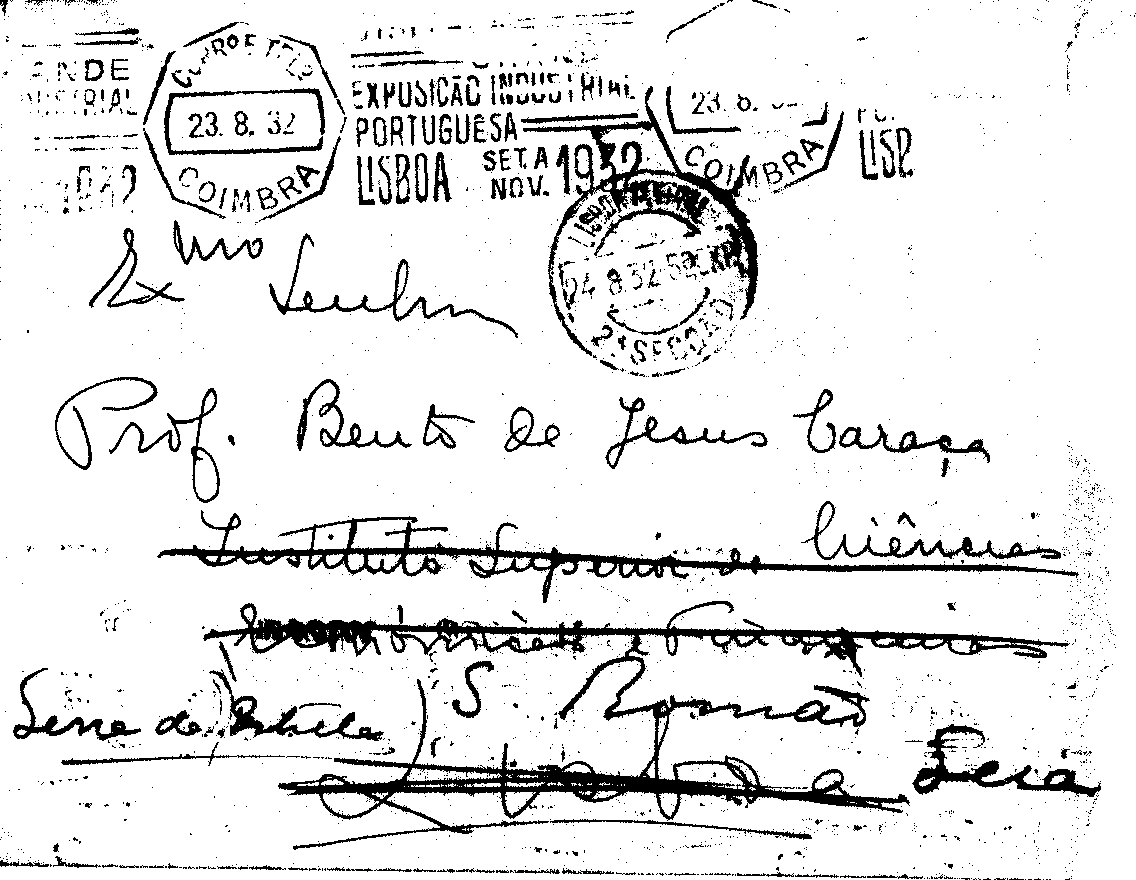 ANDE
INDUSTRIAL
1932
CORRO E TELE
23. 8. 32
COIMBRA
EXPOSICÃO INDUSTRIAL
PORTUGUESA
LISBOA SET. A NOV. 1932
23. 8.
COIMBRA
LISB
24 8 32
2ª SECÇÃO
Exmo Senhor
Prof. Bento de Jesus Caraça
Instituto Superior de Ciências
Económicas e Financeiras
Serra da Estrela S Romão
Lisboa Seia